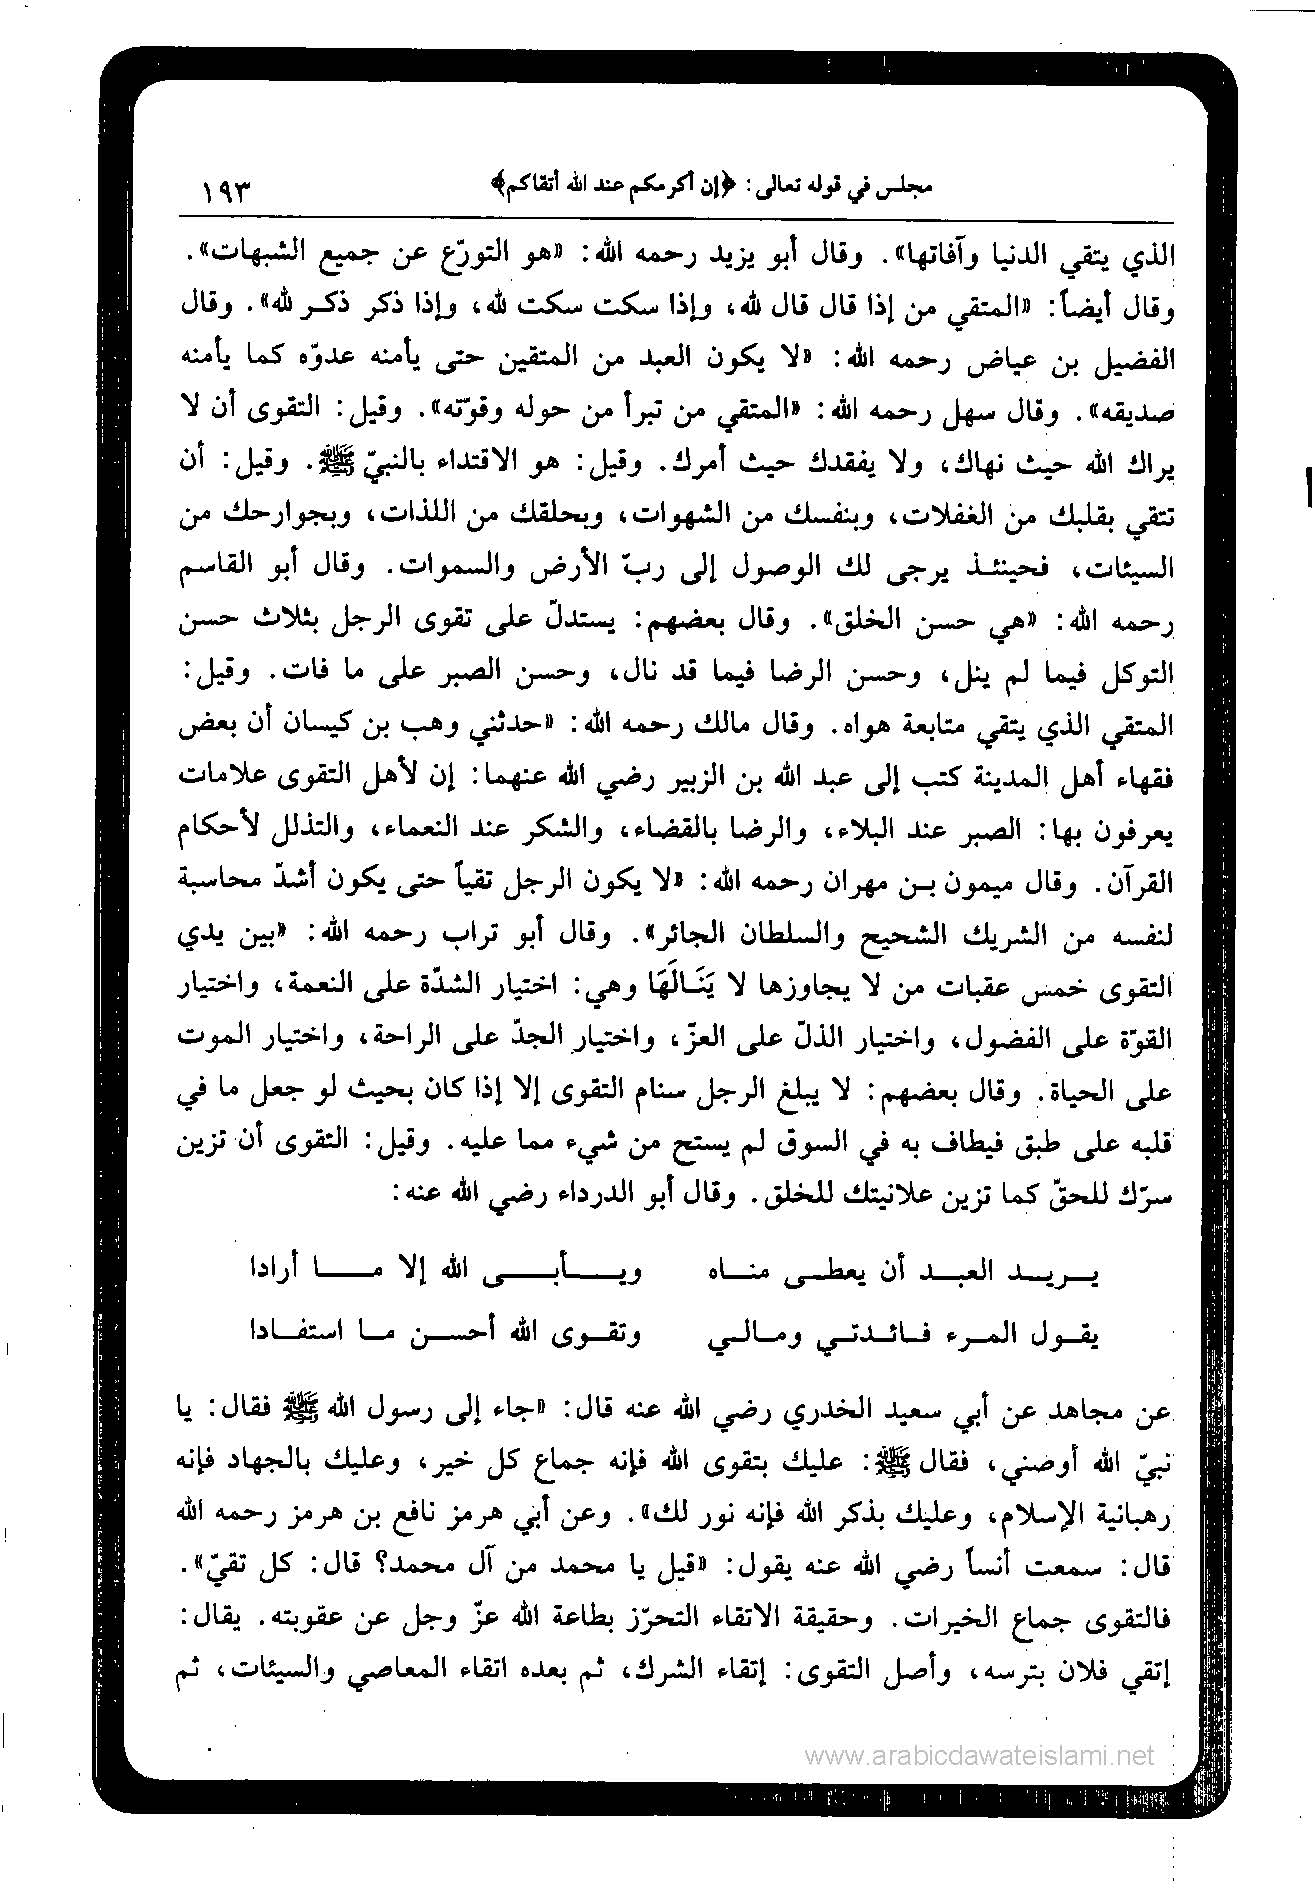 مجلس في قوله تعالى: ﴿إن أكرمكم عند الله أتقاكم﴾ ١٩٣
الذي يتقي الدنيا وآفاتها». وقال أبو يزيد رحمه الله: «هو التورّع عن جميع الشبهات».
وقال أيضاً: «المتقي من إذا قال قال لله، وإذا سكت سكت لله، وإذا ذكر ذكر لله». وقال
الفضيل بن عياض رحمه الله: «لا يكون العبد من المتقين حتى يأمنه عدوّه كما يأمنه
صديقه». وقال سهل رحمه الله: «المتقي من تبرأ من حوله وقوّته». وقيل: التقوى أن لا
يراك الله حيث نهاك، ولا يفقدك حيث أمرك. وقيل: هو الاقتداء بالنبيّ ﷺ. وقيل: أن
تتقي بقلبك من الغفلات، وبنفسك من الشهوات، وبحلقك من اللذات، وبجوارحك من
السيئات، فحينئذ يرجى لك الوصول إلى ربّ الأرض والسموات. وقال أبو القاسم
رحمه الله: «هي حسن الخلق». وقال بعضهم: يستدلّ على تقوى الرجل بثلاث حسن
التوكل فيما لم ينل، وحسن الرضا فيما قد نال، وحسن الصبر على ما فات. وقيل:
المتقي الذي يتقي متابعة هواه. وقال مالك رحمه الله: «حدثني وهب بن كيسان أن بعض
فقهاء أهل المدينة كتب إلى عبد الله بن الزبير رضي الله عنهما: إن لأهل التقوى علامات
يعرفون بها: الصبر عند البلاء، والرضا بالقضاء، والشكر عند النعماء، والتذلل لأحكام
القرآن. وقال ميمون بن مهران رحمه الله: «لا يكون الرجل تقياً حتى يكون أشدّ محاسبة
لنفسه من الشريك الشحيح والسلطان الجائر». وقال أبو تراب رحمه الله: «بين يدي
التقوى خمس عقبات من لا يجاوزها لا يَنَالَهَا وهي: اختيار الشدّة على النعمة، واختيار
القوّة على الفضول، واختيار الذلّ على العزّ، واختيار الجدّ على الراحة، واختيار الموت
على الحياة. وقال بعضهم: لا يبلغ الرجل سنام التقوى إلا إذا كان بحيث لو جعل ما في
قلبه على طبق فيطاف به في السوق لم يستح من شيء مما عليه. وقيل: التقوى أن تزين
سرّك للحقّ كما تزين علانيتك للخلق. وقال أبو الدرداء رضي الله عنه:
يريد العبد أن يعطى مناه ويأبى الله إلا ما أرادا
يقول المرء فائدتي ومالي وتقوى الله أحسن ما استفادا
عن مجاهد عن أبي سعيد الخدري رضي الله عنه قال: «جاء إلى رسول الله ﷺ فقال: يا
نبيّ الله أوصني، فقال ﷺ: عليك بتقوى الله فإنه جماع كل خير، وعليك بالجهاد فإنه
رهبانية الإسلام، وعليك بذكر الله فإنه نور لك». وعن أبي هرمز نافع بن هرمز رحمه الله
قال: سمعت أنساً رضي الله عنه يقول: «قيل يا محمد من آل محمد؟ قال: كل تقيّ».
فالتقوى جماع الخيرات. وحقيقة الاتقاء التحرّز بطاعة الله عزّ وجل عن عقوبته. يقال:
إتقي فلان بترسه، وأصل التقوى: إتقاء الشرك، ثم بعده اتقاء المعاصي والسيئات، ثم
www.arabicdawateislami.net